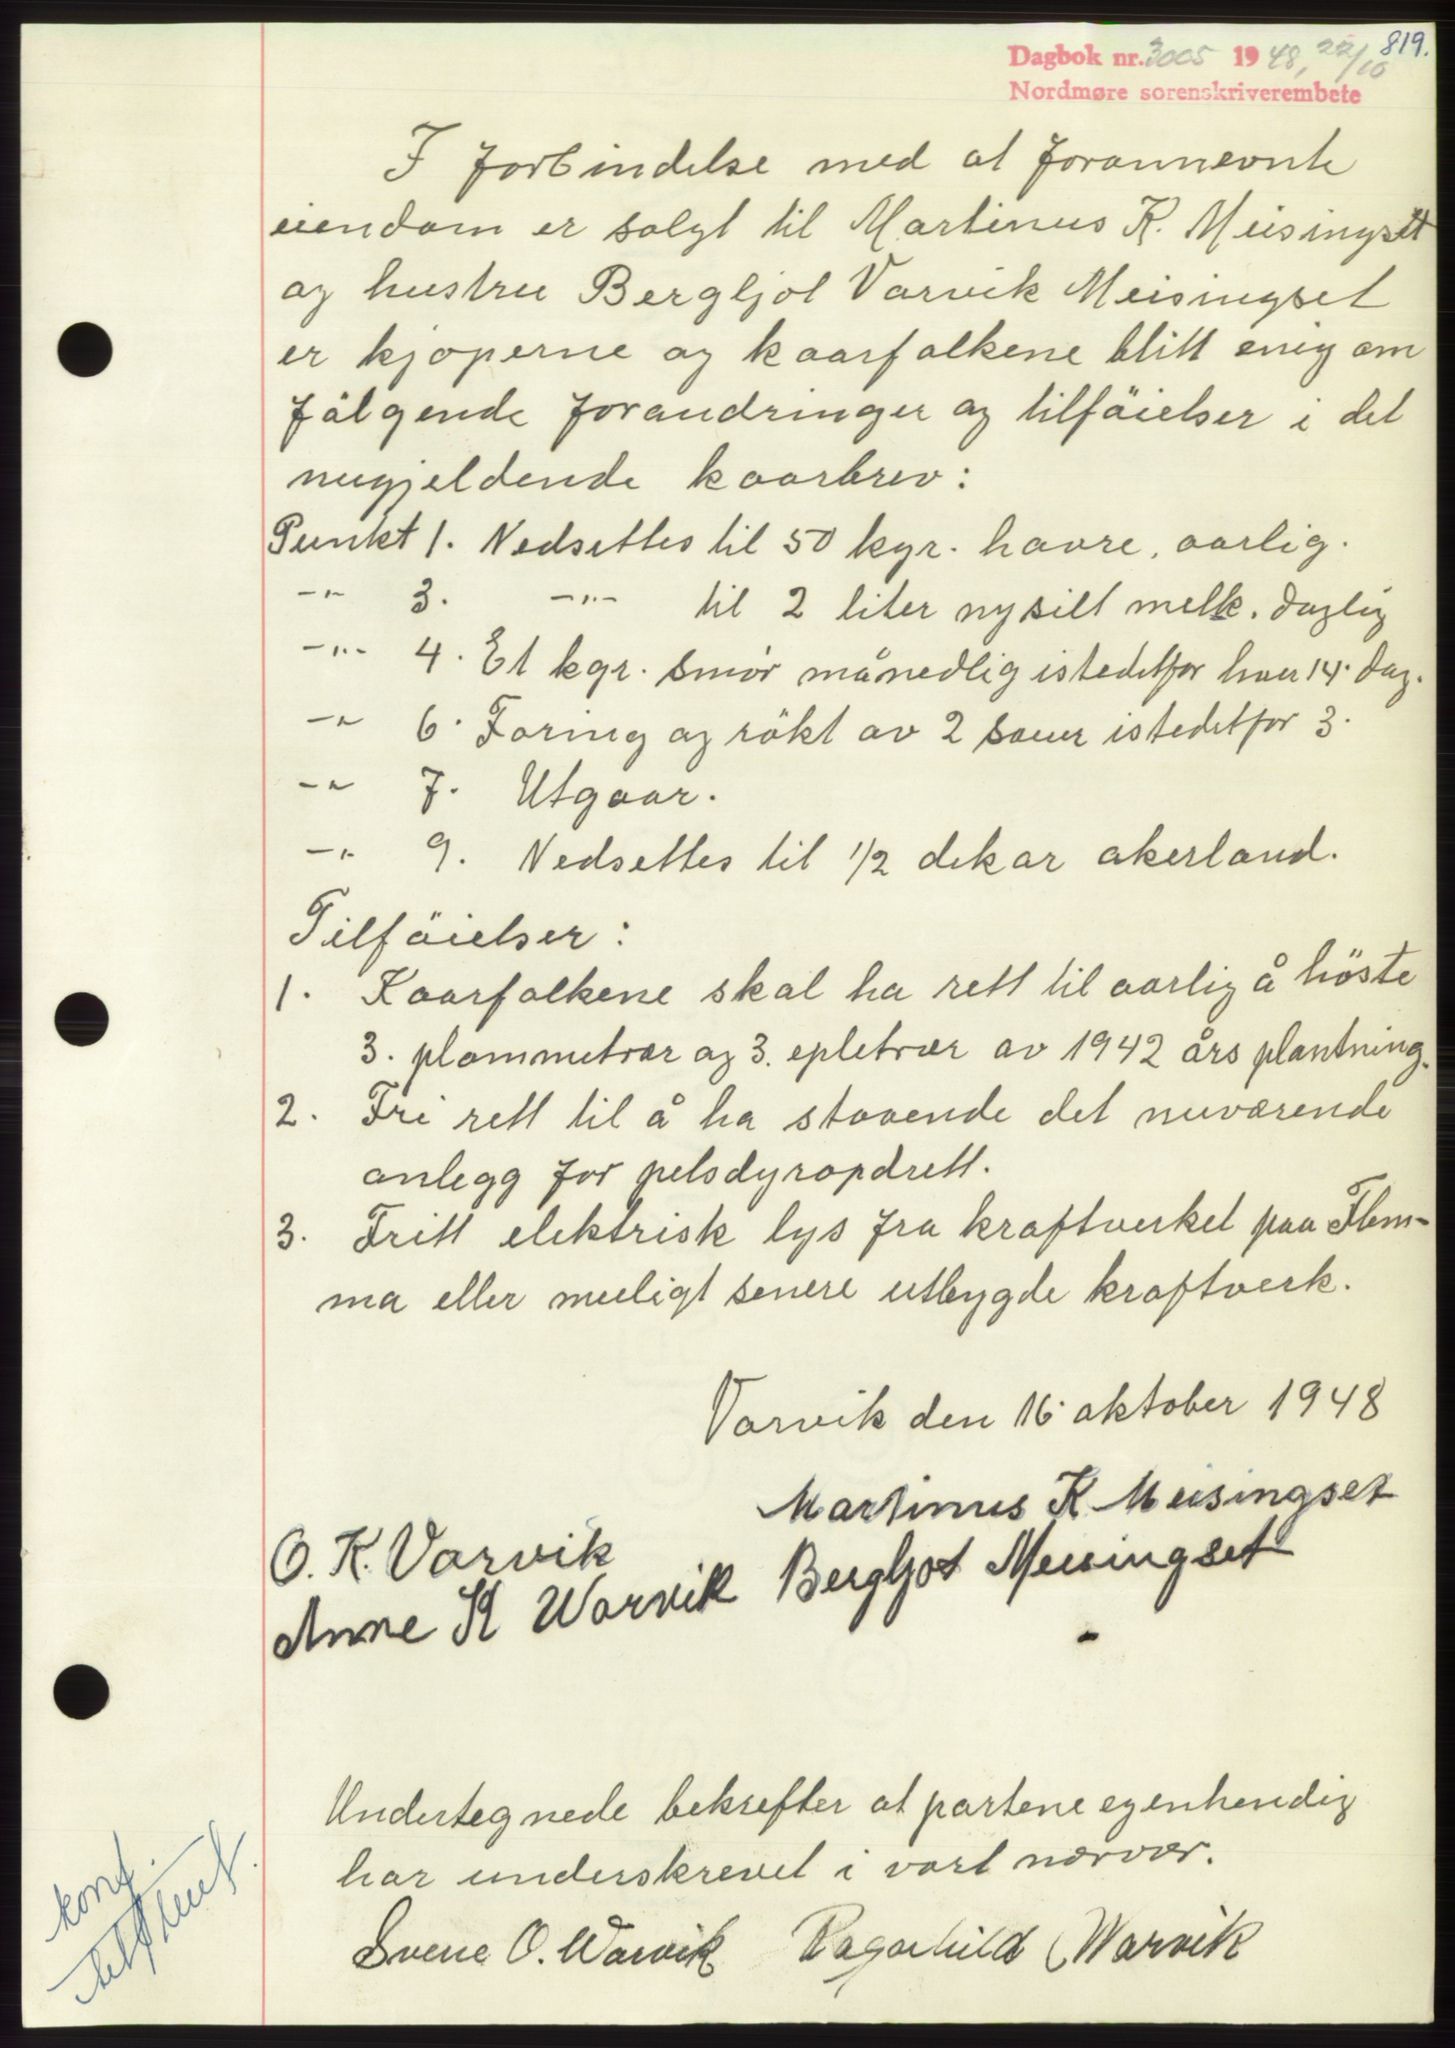 819.
Dagbok nr. 3005 1948, 22/10
Nordmøre sorenskriverembete
I forbindelse med at forannevnte
eiendom er solgt til Martinus K. Meisingset
og hustru Bergljot Varvik Meisingset
er kjøperne og kaarfolkene blitt enig om
følgende forandringer og tilföielser i det
nugjeldende kaarbrev:
Punkt 1. Nedsettes til 50 kgr. havre, aarlig.
-"- 3. -"- til 2 liter nysilt melk. daglig
-"- 4. Et kgr. smör månedlig istedetfor hver 14. dag.
-"- 6. Foring og rökt av 2 sauer istedetfor 3.
-"- 7. Utgaar.
-"- 9. Nedsettes til 1/2 dekar akerland.
Tilföielser:
1. Kaarfolkene skal ha rett til aarlig å höste
3. plommetrær og 3. epletrær av 1942 års plantning.
2. Fri rett til å ha staaende det nuværende
anlegg for pelsdyropdrett.
3. Fritt elektrisk lys fra kraftverket paa Flem-
ma eller muligt senere utbygde kraftverk.
Varvik den 16. oktober 1948
Martinus K Meisingset
O. K. Varvik
Bergljot Meisingset
Anne K Warvik
Undertegnede bekrefter at partene egenhendig
har underskrevet i vart nærvær.
Svene O. Warvik Ragnhild Warvik
konf.